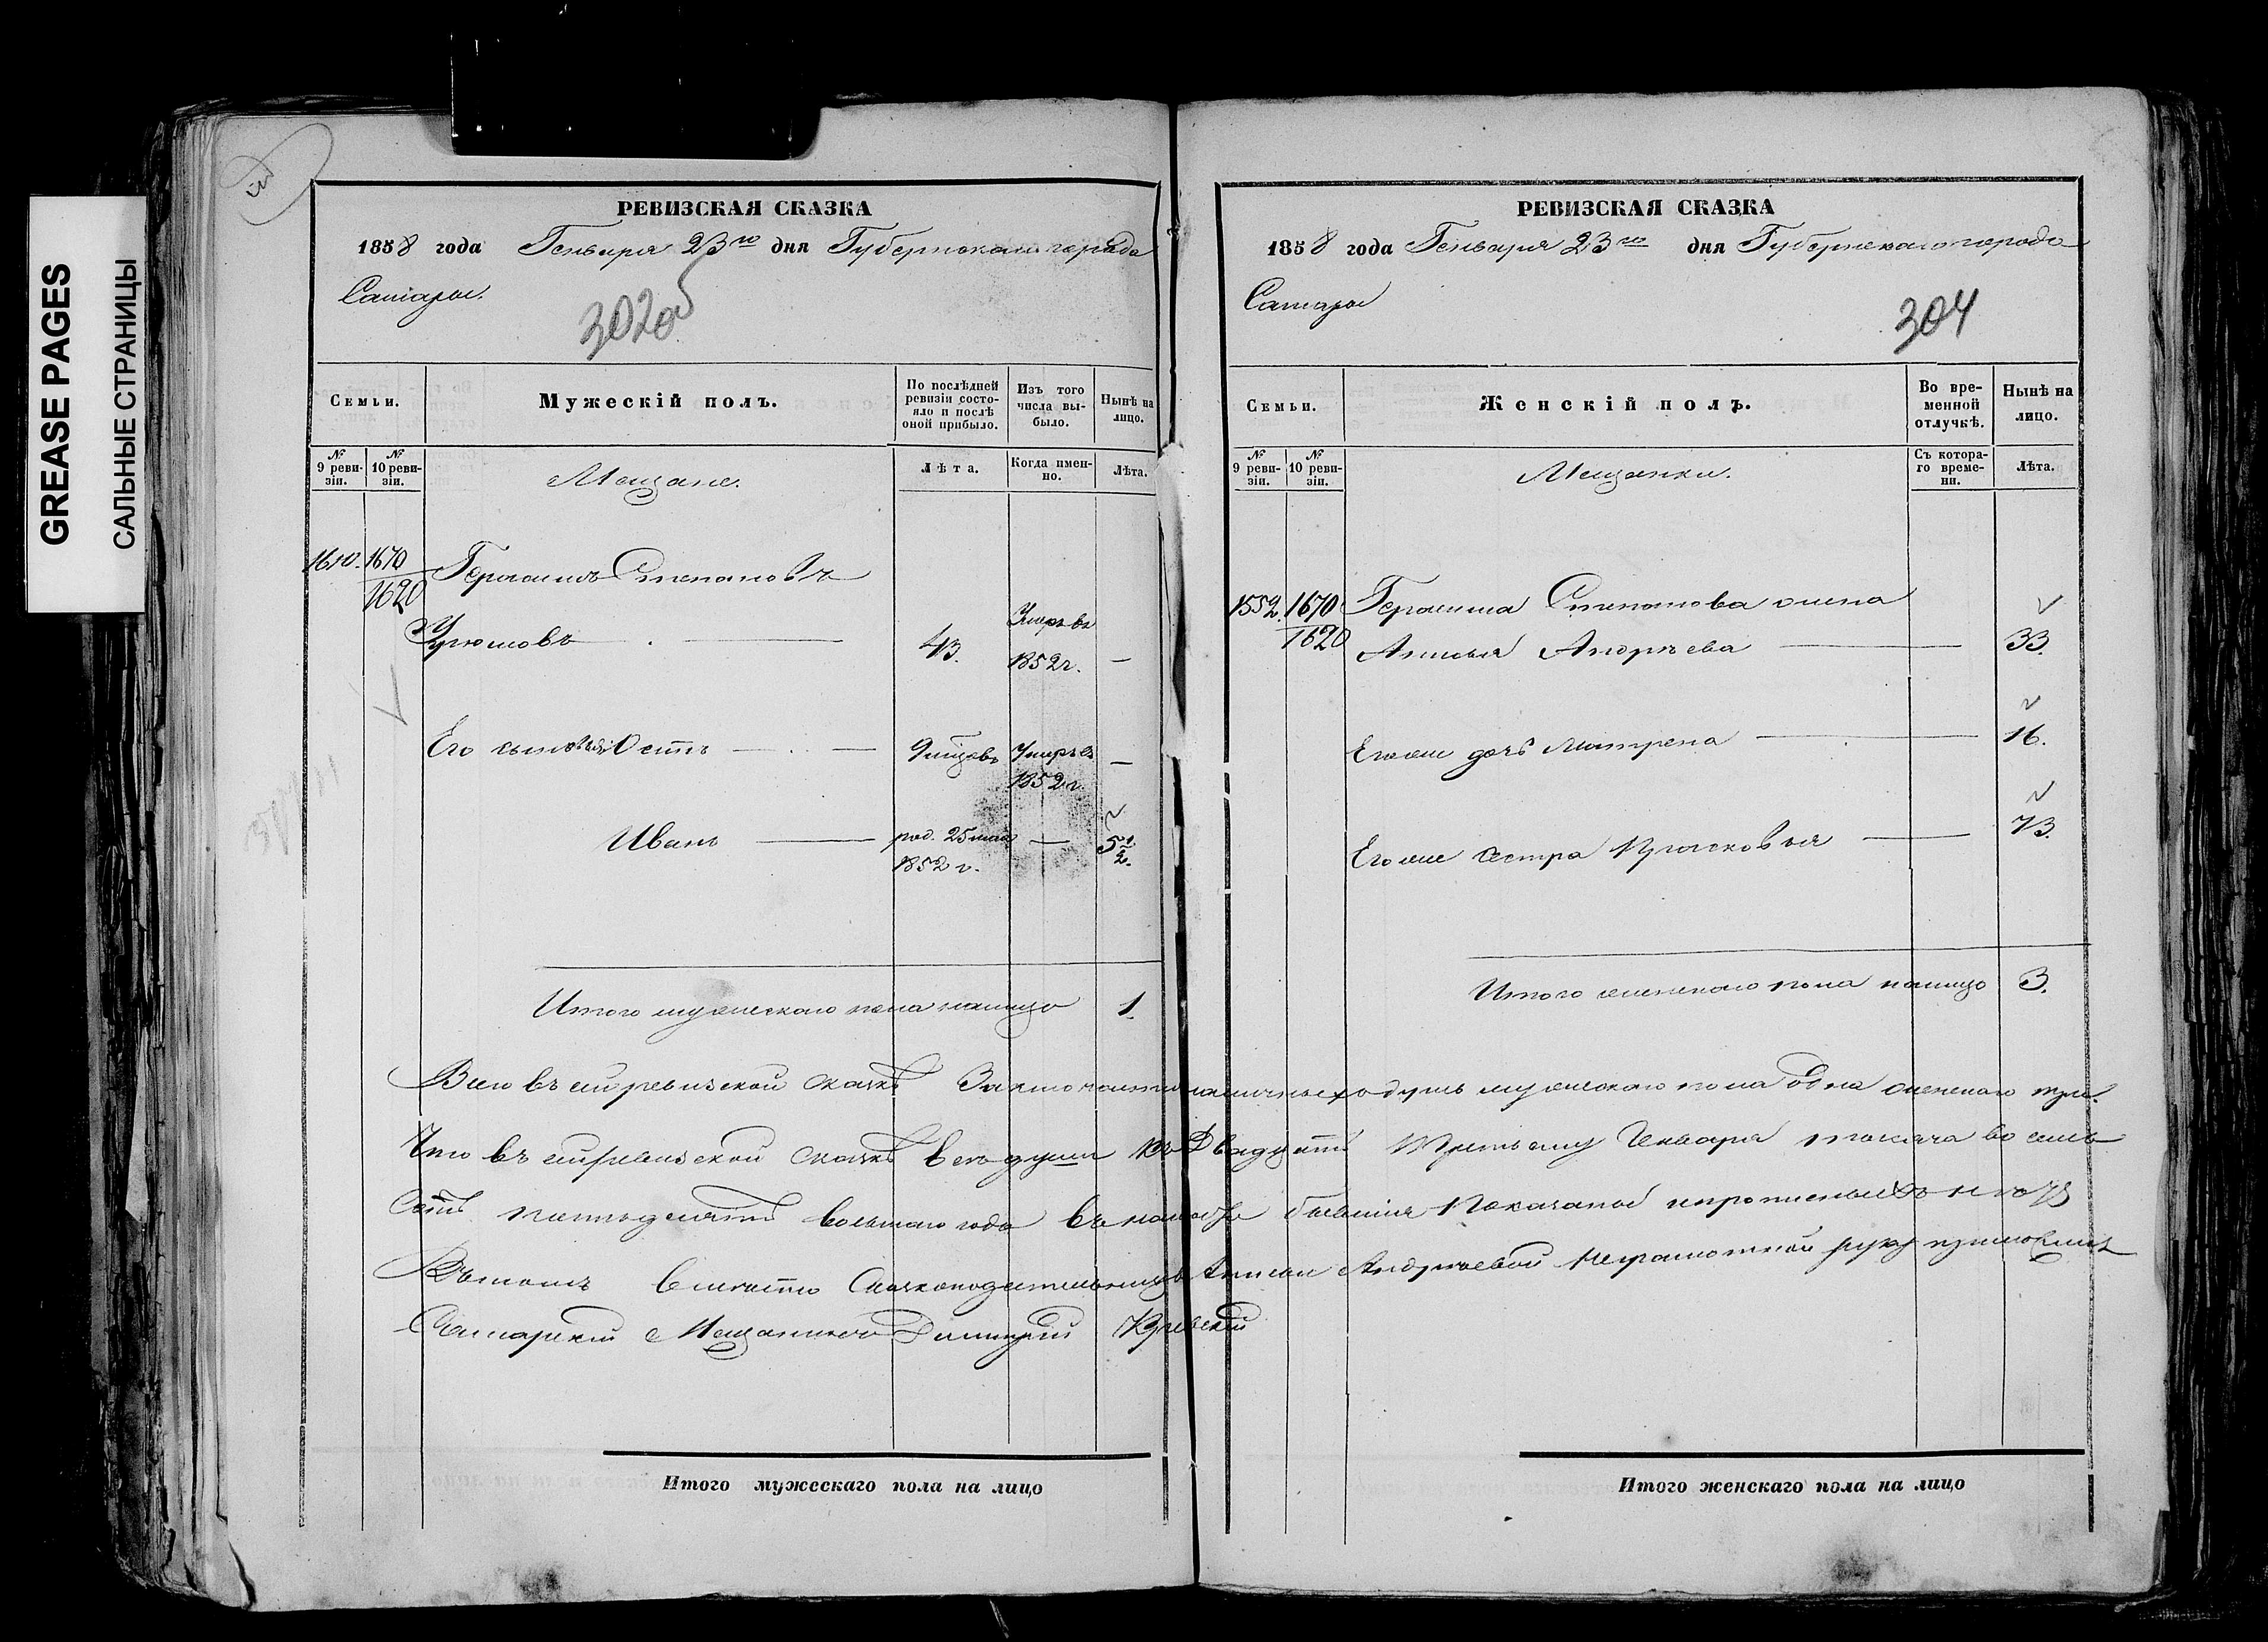 GREASE PAGES
САЛЬНЫЕ СТРАНИЦЫ
РЕВИЗСКАЯ СКАЗКА
1858 года Генваря 23го дня Губернскаго города
Самары.
302об
Семьи.
Мужескій полъ.
По послѣдней ревизіи состояло и послѣ оной прибыло.
Изъ того числа выбыло.
Нынѣ на лицо.
№ 9 ревизіи.
№ 10 ревизіи.
Мещане.
Лѣта.
Когда именно.
Лѣта.
1610. 1670 Герасимъ Степановъ
1620
43. Умеръ въ 1852 г. —
Его сыновья 9 мѣсцовъ Умеръ въ 1852 г. —
Иванъ — род. 25 мая 1852 г. — 5 1/2.
Итого мужескаго пола налицо 1.
РЕВИЗСКАЯ СКАЗКА
1858 года Генваря 23го дня Губернскаго города
Самары
304
Семьи.
Женскій полъ.
Во временной отлучкѣ.
Нынѣ на лицо.
№ 9 ревизіи.
№ 10 ревизіи.
Мещанки.
Съ котораго времени.
Лѣта.
1552. 1670 Герасима Степанова жена
1620 Андрѣева — 33.
Его же дочь Матрена — 16.
Его же сестра Прасковья — 43.
Итого женскаго пола налицо 3.
Всего въ сей ревизской сказкѣ заключается наличныхъ душъ мужескаго пола одна женскаго три.
Что въ сей ревизской сказкѣ всѣ души къ Двадцать третьему Генваря тысяча восемь
сотъ пятьдесятъ восьмаго года въ показаны и прописныхъ нѣтъ
Въ томъ вмѣсто Сказкоподательницы Андрѣевой неграмотной руку приложилъ
Самарскій Мещанинъ Димитрій
Итого мужескаго пола на лицо
Итого женскаго пола на лицо